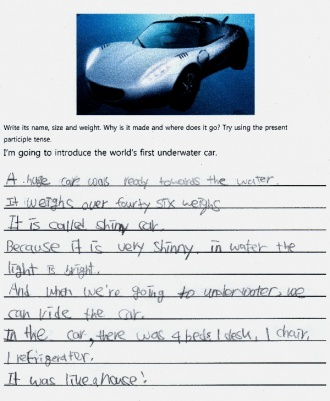 Write its name, size and weight. Why is it made and where does it go? Try using the present
participle tense.
I'm going to introduce the world's first underwater car.
A huge car was ready towards the water.
It weighs over fourty six weighs
It is called shiny car.
Because it is very shinny. in water the
light is bright.
And when we're going to underwater, we
can ride the car.
In the car, there was 4 beds 1 desk, 1 chair,
1 refrigerator.
It was like a house!